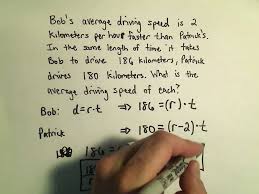 Bob's average driving speed is 2
kilometers per hour faster than Patrick's.
In the same length of time it takes
Bob to drive 186 kilometers, Patrick
drives 180 kilometers. What is the
average driving speed of each?
Bob: d=r·t ⇒ 186 = (r)·t
Patrick ⇒ 180 = (r-2)·t
186 =